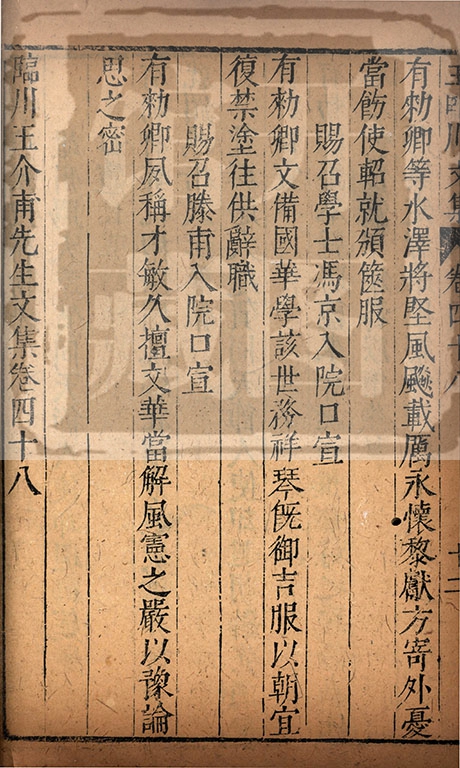 王臨川文集 卷四十八 十二
有勑卿等水澤將堅風飈載厲永懷黎獻方寄外憂
當飭使軺就頒篋服
賜召學士馮京入院口宣
有勑卿文備國華學該世務祥琴旣御吉服以朝宜
復禁塗往供辭職
賜召滕甫入院口宣
有勑卿夙稱才敏久擅文華當解風憲之嚴以豫論
思之密
臨川王介甫先生文集卷四十八